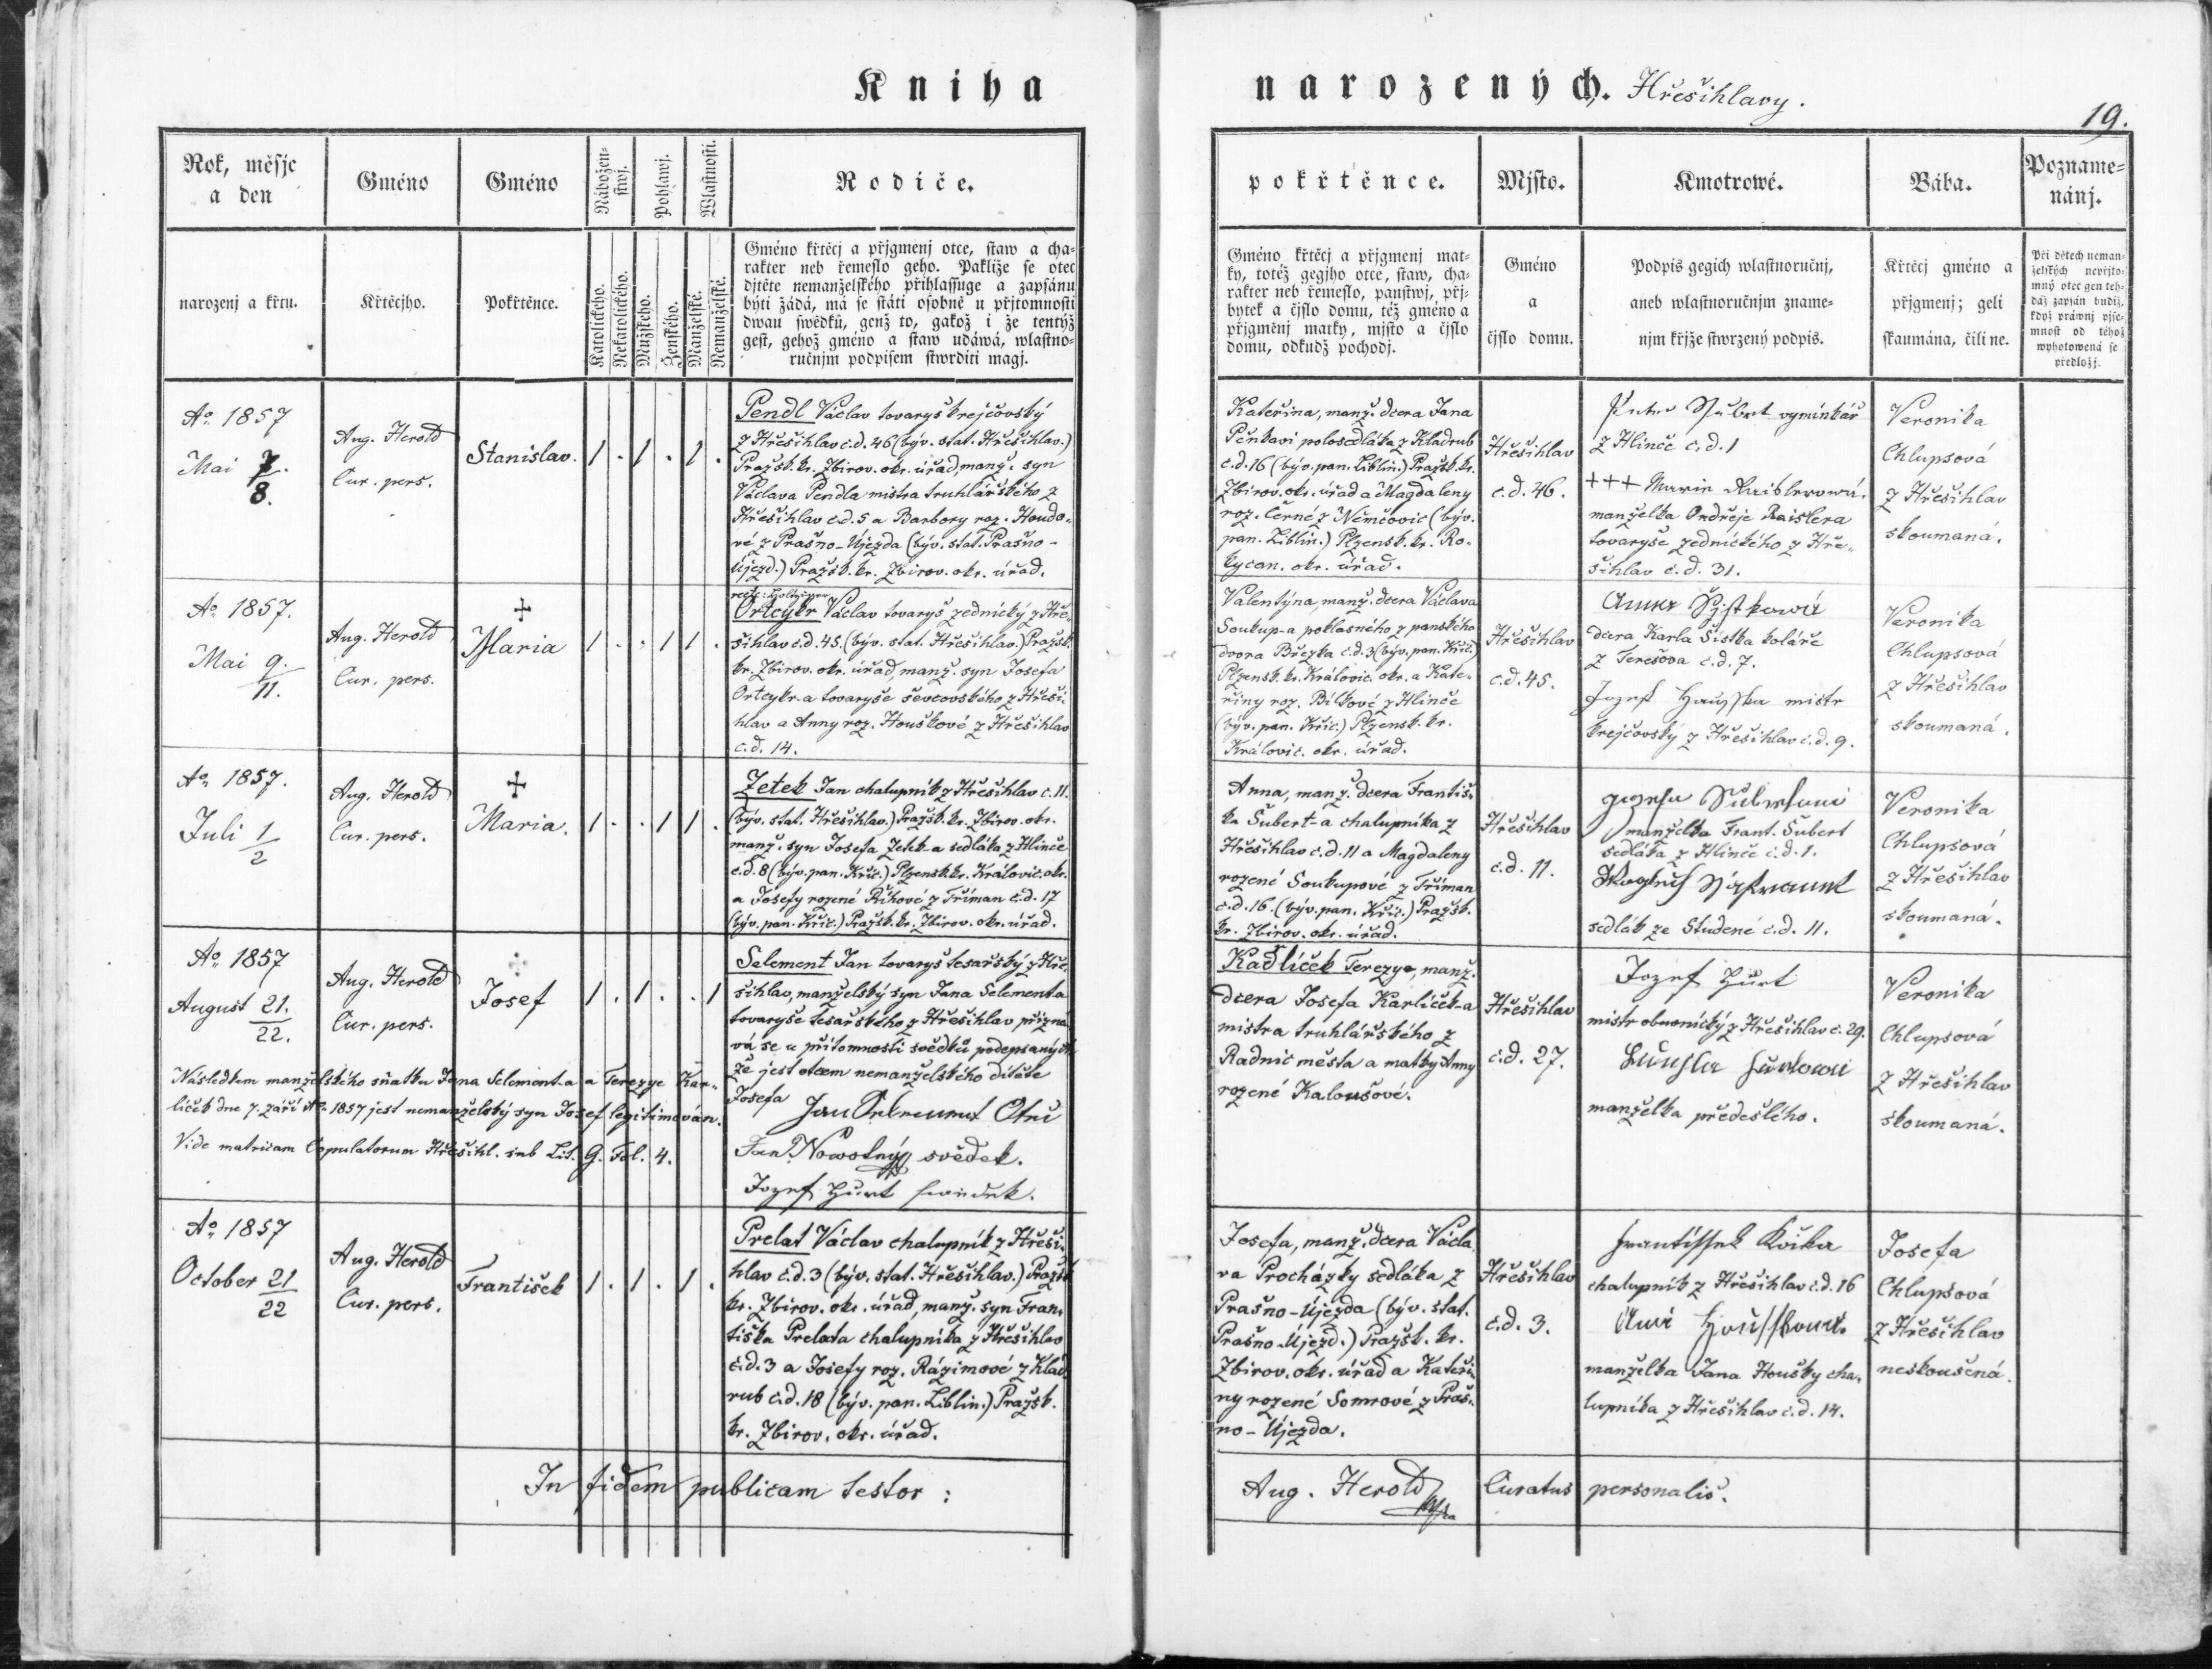 Kniha
narozených. Hřešihlavy.
19.
Rok, měsjc
a den
Gméno
Gméno
Nábožen-
stwj.
Pohlawj.
Wlastnosti.
Rodiče.
narozenj a křtu.
Křtěcjho.
Pokřtěnce.
Katolického.
Nekatolického.
Mužského.
Ženského.
Manželské.
Nemanželské.
Gméno křtěcj a přjgmenj otce, staw a cha-
rakter neb řemeslo geho. Pakliže se otec
djtěte nemanželského přihlassuge a zapsánu
býti žádá, má se státi osobně u přjtomnosti
dwau swědků, genž to, gakož i že tentýž
gest, gehož gméno a staw udáwá, wlastno-
ručnjm podpisem stwrditi magj.
pokřtěnce.
Mjsto.
Kmotrowé.
Bába.
Pozname-
nánj.
Gméno křtěcj a přjgmenj mat-
ky, totéž gegjho otce, staw, cha-
rakter neb řemeslo, panstwj, přj-
bytek a čjslo domu, též gméno a
přjgměnj matky, mjsto a čjslo
domu, odkudž pochodj.
Gméno
a
čjslo domu.
Podpis gegich wlastnoručnj,
aneb wlastnoručnjm zname-
njm křjže stwrzený podpis.
Křtěcj gméno a
přjgmenj; geli
skaumána, čili ne.
Při dětech neman-
želských nepřjto-
mný otec gen teh-
dáž zapsán budiž,
když práwnj pjse-
mnost od téhož
wyhotowená se
předložj.
Ao 1857
Mai 7.
8.
Aug. Herold
Cur. pers.
Stanislav.
1 . 1 . 1 .
Pendl Václav tovaryš krejčovský
z Hřešihlav č.d. 46 (býv. stat. Hřešihlav.)
Pražsk. kr. Zbirov. okr. úřad, manž. syn
Václava Pendla mistra truhlářského z
Hřešihlav č.d. 5 a Barbory roz. Houdo-
vé z Prašno-Újezda (býv. stat. Prašno-
Újezd.) Pražsk. kr. Zbirov. okr. úřad.
Kateřina, manž. dcera Jana
Pěnkavi polosedláka z Kladrub
č.d. 16 (býv. pan. Liblin.) Pražsk. kr.
Zbirov. okr. úřad a Magdaleny
roz. Černé z Němčovic (býv.
pan. Liblin.) Plzensk. kr. Ro-
kycan. okr. úřad.
Hřešihlav
č.d. 46.
Šubrt vyminkář
z Hlince č.d. 1
+++ Marie
manželka Ondřeje Raislera
tovaryše zednického z Hře-
šihlav č.d. 31.
Veronika
Chlupsová
z Hřešihlav
skoumaná.
Ao 1857.
Mai 9.
11.
Aug. Herold
Cur. pers.
+
Maria
1 . . 1 1 .
recte:
Ortcykr Václav tovaryš zednický z Hře-
šihlav č.d. 45. (býv. stat. Hřešihlav.) Pražsk.
kr. Zbirov. okr. úřad, manž. syn Josefa
Ortcykr-a tovaryše ševcovského z Hřeši-
hlav a Anny roz. Houškové z Hřešihlav
č.d. 14.
Valentýna, manž. dcera Václava
Soukup-a poklasného z panského
dvora Březka č.d. 3 (býv. pan. Křič.)
Plzensk. kr. Královic. okr. a Kate-
řiny roz. Bílkové z Hlinče
(býv. pan. Křic.) Plzensk. kr.
Královic. okr. úřad.
Hřešihlav
č.d. 45.
Anna
dcera Karla Šístka koláře
z Terešova č.d. 7.
Jozef Hauska mistr
krejčovský z Hřešihlav č.d. 9.
Veronika
Chlupsová
z Hřešihlav
skoumaná.
Ao 1857.
Juli 1
2
Aug. Herold
Cur. pers.
+
Maria.
1 . . 1 1 .
Zetek Jan chalupník z Hřešihlav č. 11.
(býv. stat. Hřešihlav.) Pražsk. kr. Zbirov. okr.
manž. syn Josefa Zetek-a sedláka z Hlinče
č.d. 8 (býv. pan. Křič.) Plzensk. kr. Královic. okr.
a Josefy rozené Říhové z Tříman č.d. 17
(býv. pan. Křič.) Pražsk. kr. Zbirov. okr. úřad.
Anna, manž. dcera Františ-
ka Šubert-a chalupníka z
Hřešihlav č.d. 11 a Magdaleny
rozené Soukupové z Tříman
č.d. 16. (býv. pan. Křič.) Pražsk.
kr. Zbirov. okr. úřad.
Hřešihlav
č.d. 11.
manželka Frant. Šubert
sedláka z Hlinče č.d. 1.
sedlák ze Studené č.d. 11.
Veronika
Chlupsová
z Hřešihlav
skoumaná.
Ao 1857
August 21.
22.
Aug. Herold
Cur. pers.
Josef
1 . 1 . . 1
Selement Jan tovaryš tesařský z Hře-
šihlav, manželský syn Jana Selementa
tovaryše tesařského z Hřešihlav přizná-
vá se u přítomnosti svědků podepsaných
že jest otcem nemanželského dítěte
Josefa
Jan Selement
Jan Nowotný svědek.
Jozef Hurt
Následkem manželského sňatku Jana Selement-a a Terezye Kar-
líček dne 7. září Ao 1857 jest nemanželský syn Josef legitimován.
Vide matricam Copulatorum Hřešihl. sub Lit. G. Fol. 4.
Kadlíček Terezye, manž.
dcera Josefa Karlíček-a
mistra truhlářského z
Radnic města a matky Anny
rozené Kaloušové.
Hřešihlav
č.d. 27.
Jozef Hurt
mistr obuvnický z Hřešihlav č. 29.
manželka předešlého.
Veronika
Chlupsová
z Hřešihlav
skoumaná.
Ao 1857
October 21
22
Aug. Herold
Cur. pers.
František
1 . 1 . 1 .
Prelat Václav chalupník z Hřeši-
hlav č.d. 3 (býv. stat. Hřešihlav.) Pražsk.
kr. Zbirov. okr. úřad, manž. syn Fran-
tiška Prelata chalupníka z Hřešihlav
č.d. 3 a Josefy roz. Rázimové z Klad-
rub č.d. 18 (býv. pan. Liblin.) Pražsk.
kr. Zbirov. okr. úřad.
Josefa, manž. dcera Václa-
va Procházky sedláka z
Prašno-Újezda (býv. stat.
Prašno-Újezd.) Pražsk. kr.
Zbirov. okr. úřad a Kateři-
ny rozené Somrové z Praš-
no-Újezda.
Hřešihlav
č.d. 3.
Frantissek
chalupník z Hřešihlav č.d. 16
manželka Jana Houšky cha-
lupníka z Hřešihlav č.d. 14.
Josefa
Chlupsová
z Hřešihlav
neskoušená.
In fidem publicam testor:
Aug. Herold Curatus personalis.